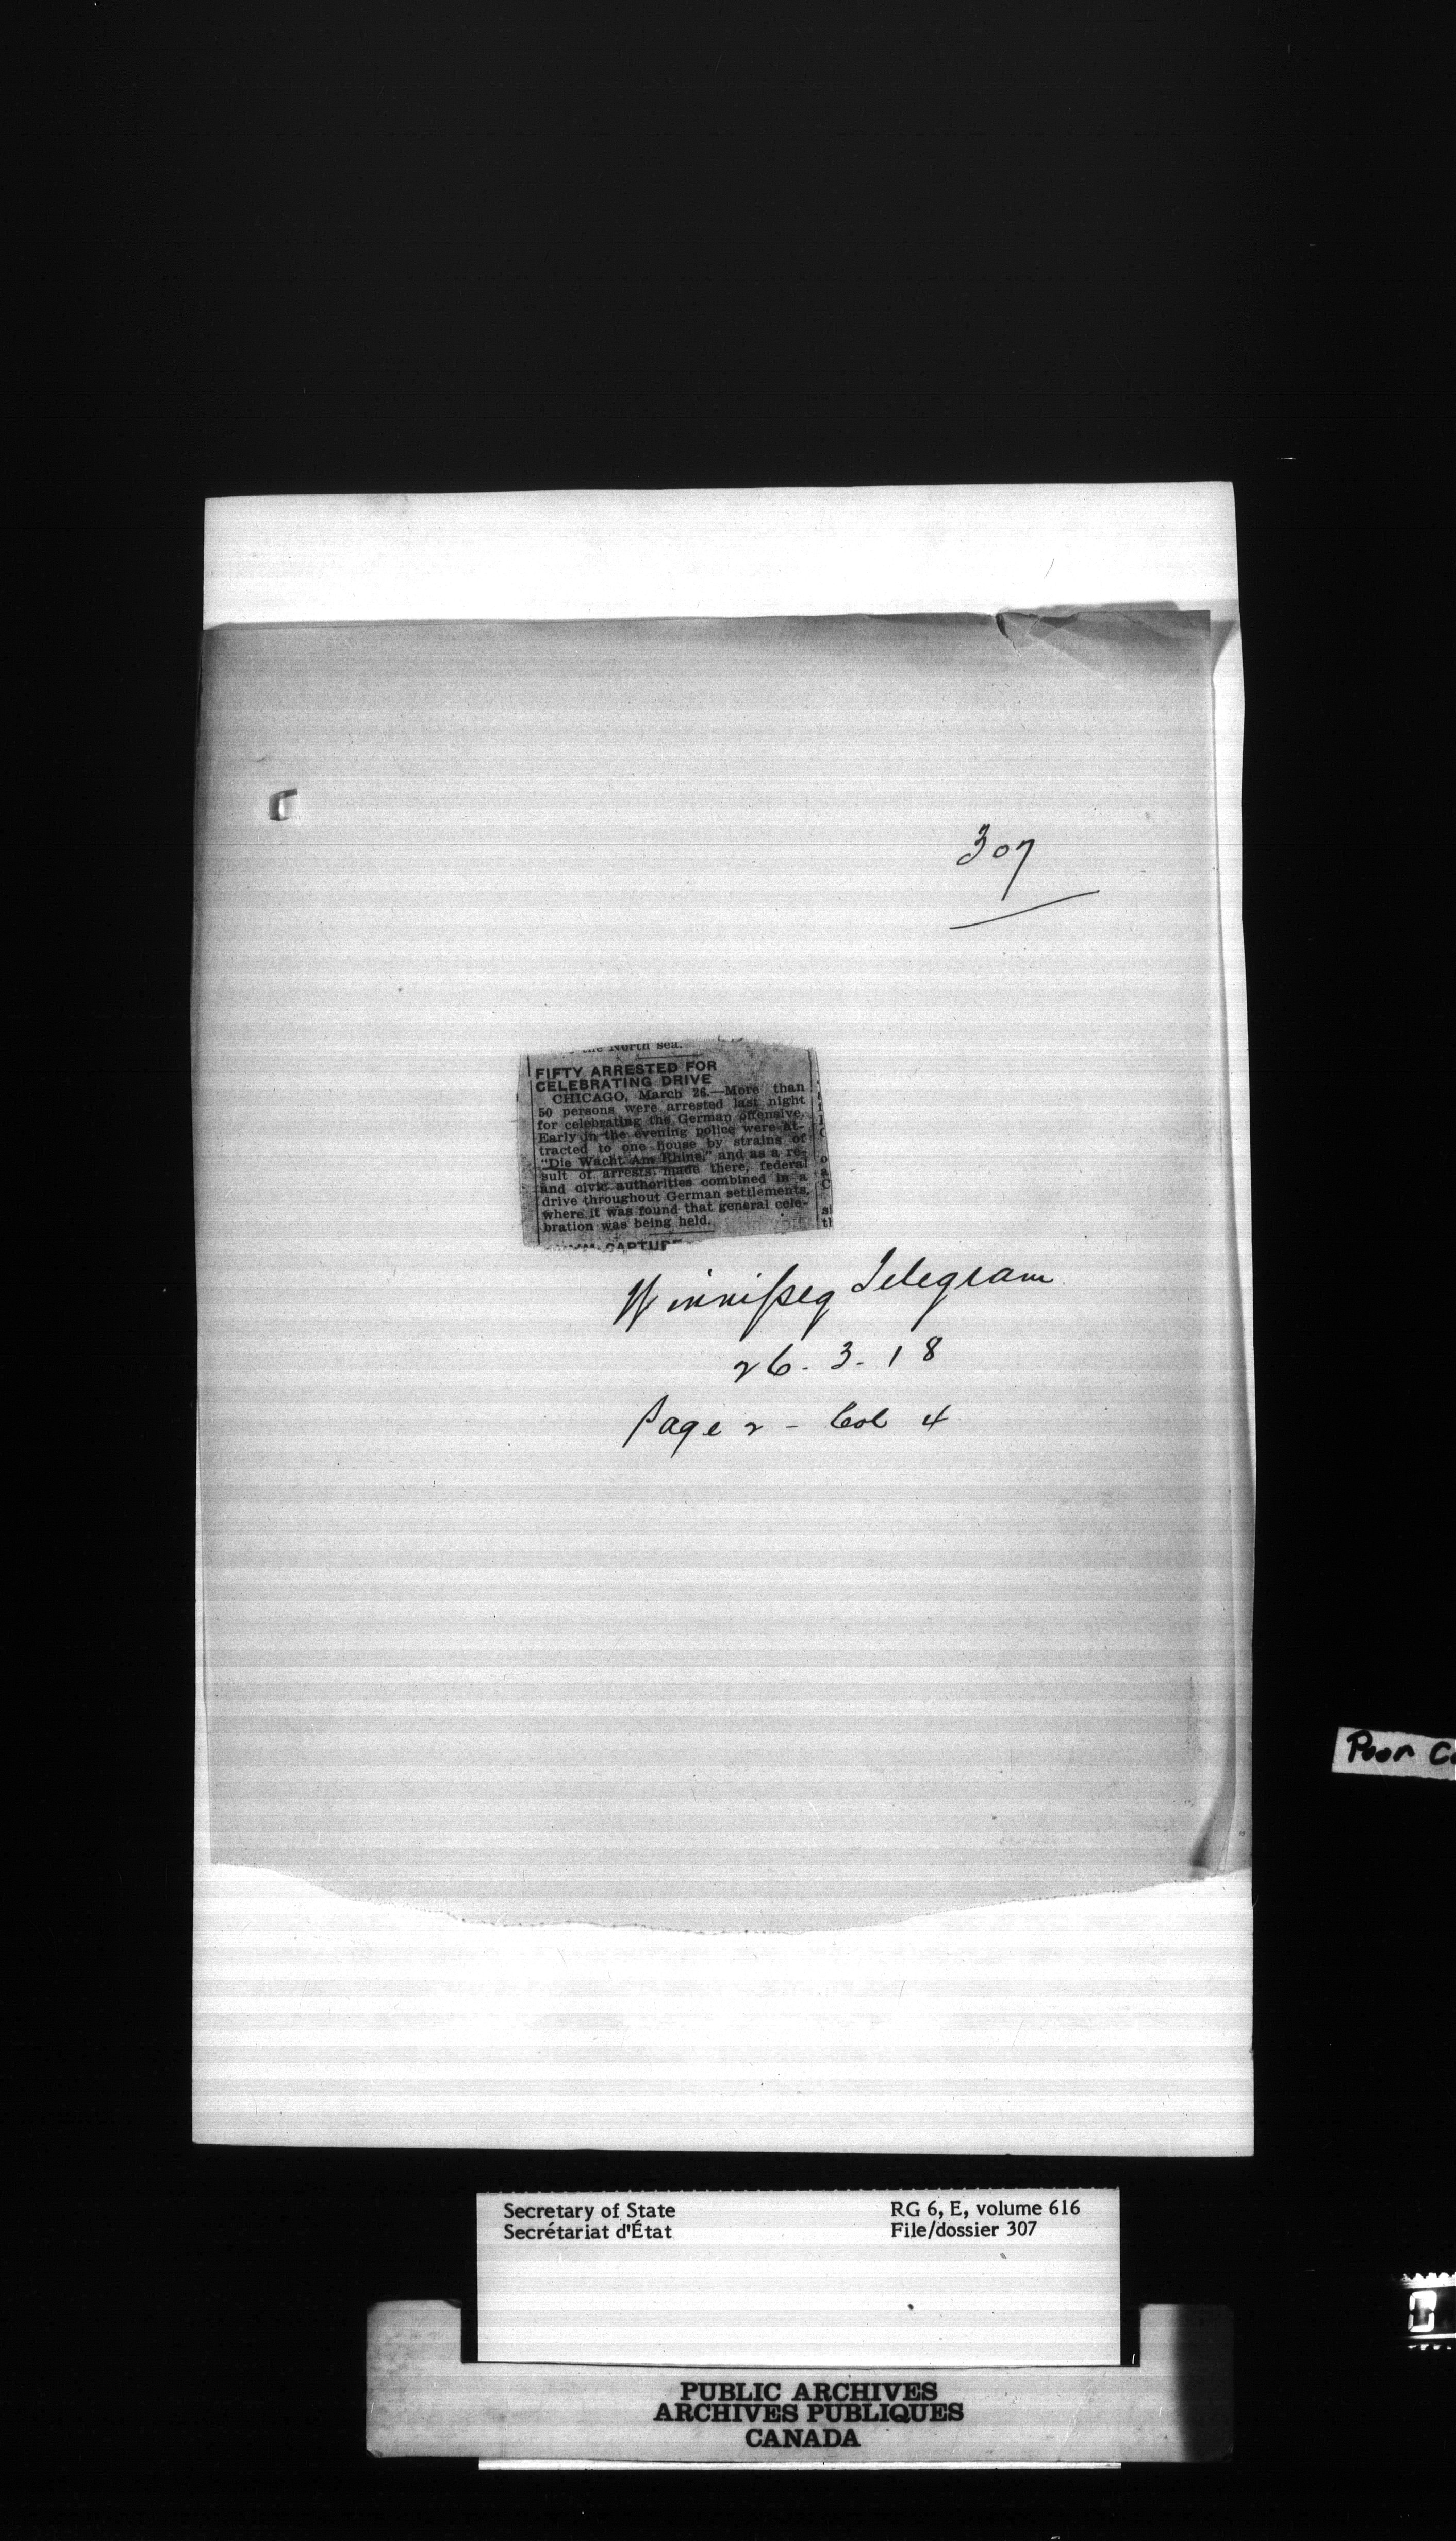 307
the North sea.
FIFTY ARRESTED FOR
CELEBRATING DRIVE
CHICAGO, March 26.—More than
50 persons were arrested last night
for celebrating the German offensive.
Early in the evening police were at-
tracted to one house by strains of
"Die Wacht Am Rhine," and as a re-
sult of arrests made there, federal
and civic authorities combined in a
drive throughout German settlements,
where it was found that general cele-
bration was being held.
CAPTURE
Winnipeg Telegram
26.3.18
Page 2 - Col 4
Poor
Secretary of State
Secrétariat d'État
RG 6, E, volume 616
File/dossier 307
PUBLIC ARCHIVES
ARCHIVES PUBLIQUES
CANADA